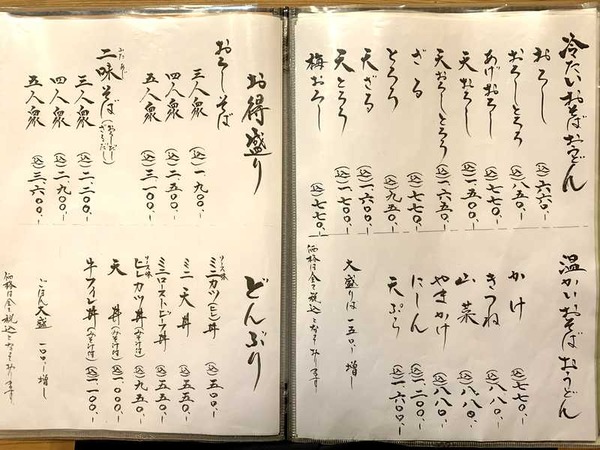 冷たいおそばおうどん
おろし (込)六六〇.-
おろしとろろ (込)八五〇.-
あげおろし (込)七七〇.-
天おろし (込)一、五〇〇.-
天おろしとろろ (込)一、六五〇.-
ざる (込)七七〇.-
とろろ (込)九五〇.-
天ざる (込)一、六〇〇.-
天とろろ (込)一、七〇〇.-
梅おろし (込)七七〇.-
温かいおそばおうどん
かけ (込)七七〇.-
きつね (込)八八〇.-
山菜 (込)八八〇.-
やまかけ (込)八八〇.-
にしん (込)一、二〇〇.-
天ぷら (込)一、六〇〇.-
大盛りは一五〇.-増し
価格は全て税込となっております
お得盛り
おろしそば
三人衆 (込)一、九〇〇.-
四人衆 (込)二、五〇〇.-
五人衆 (込)三、一〇〇.-
二味そば
ふたあじ
三人衆 (込)二、二〇〇.-
四人衆 (込)二、九〇〇.-
五人衆 (込)三、六〇〇.-
どんぶり
ソース味
ミニカツ(ヒレ)丼 (込)五〇〇.-
ミニ天丼 (込)五五〇.-
ミニローストビーフ丼 (込)五五〇.-
ソース味
ヒレカツ丼(みそ汁付) (込)九五〇.-
天丼(みそ汁付) (込)一、〇〇〇.-
牛フィレ丼(みそ汁付) (込)一、一〇〇.-
ごはん大盛 一〇〇.-増し
価格は全て税込となっております